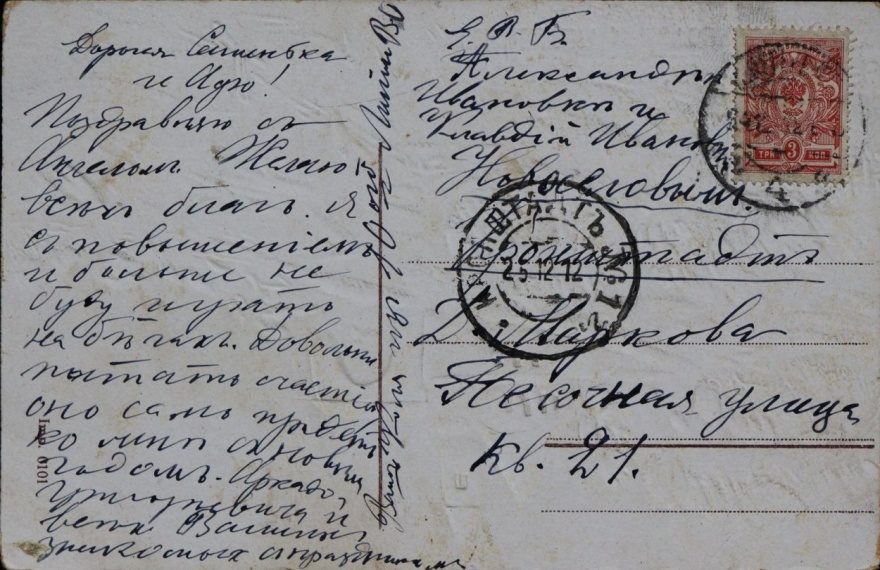 Дорогая Сашенька
и Адю!
Поздравляю съ
Ангеломъ. Желаю
всѣхъ благъ. Я
съ повышеніемъ
и больше не
буду играть
на бѣгахъ. Довольно
пытать счастіе
оно само придетъ
ко мнѣ съ новымъ
годомъ. Аркадія
Григорьевича и
всѣхъ Вашихъ
знакомыхъ с праздникомъ
Е. В. Б.
Александрѣ
Ивановнѣ и
Клавдіи Ивановнѣ
Новоселовымъ.
Кронштадтъ
Д. Маркова
Песочная улица
кв. 21.
КРОНШТАДТЪ
23 12 12
ТРИ 3 КОП.
0101